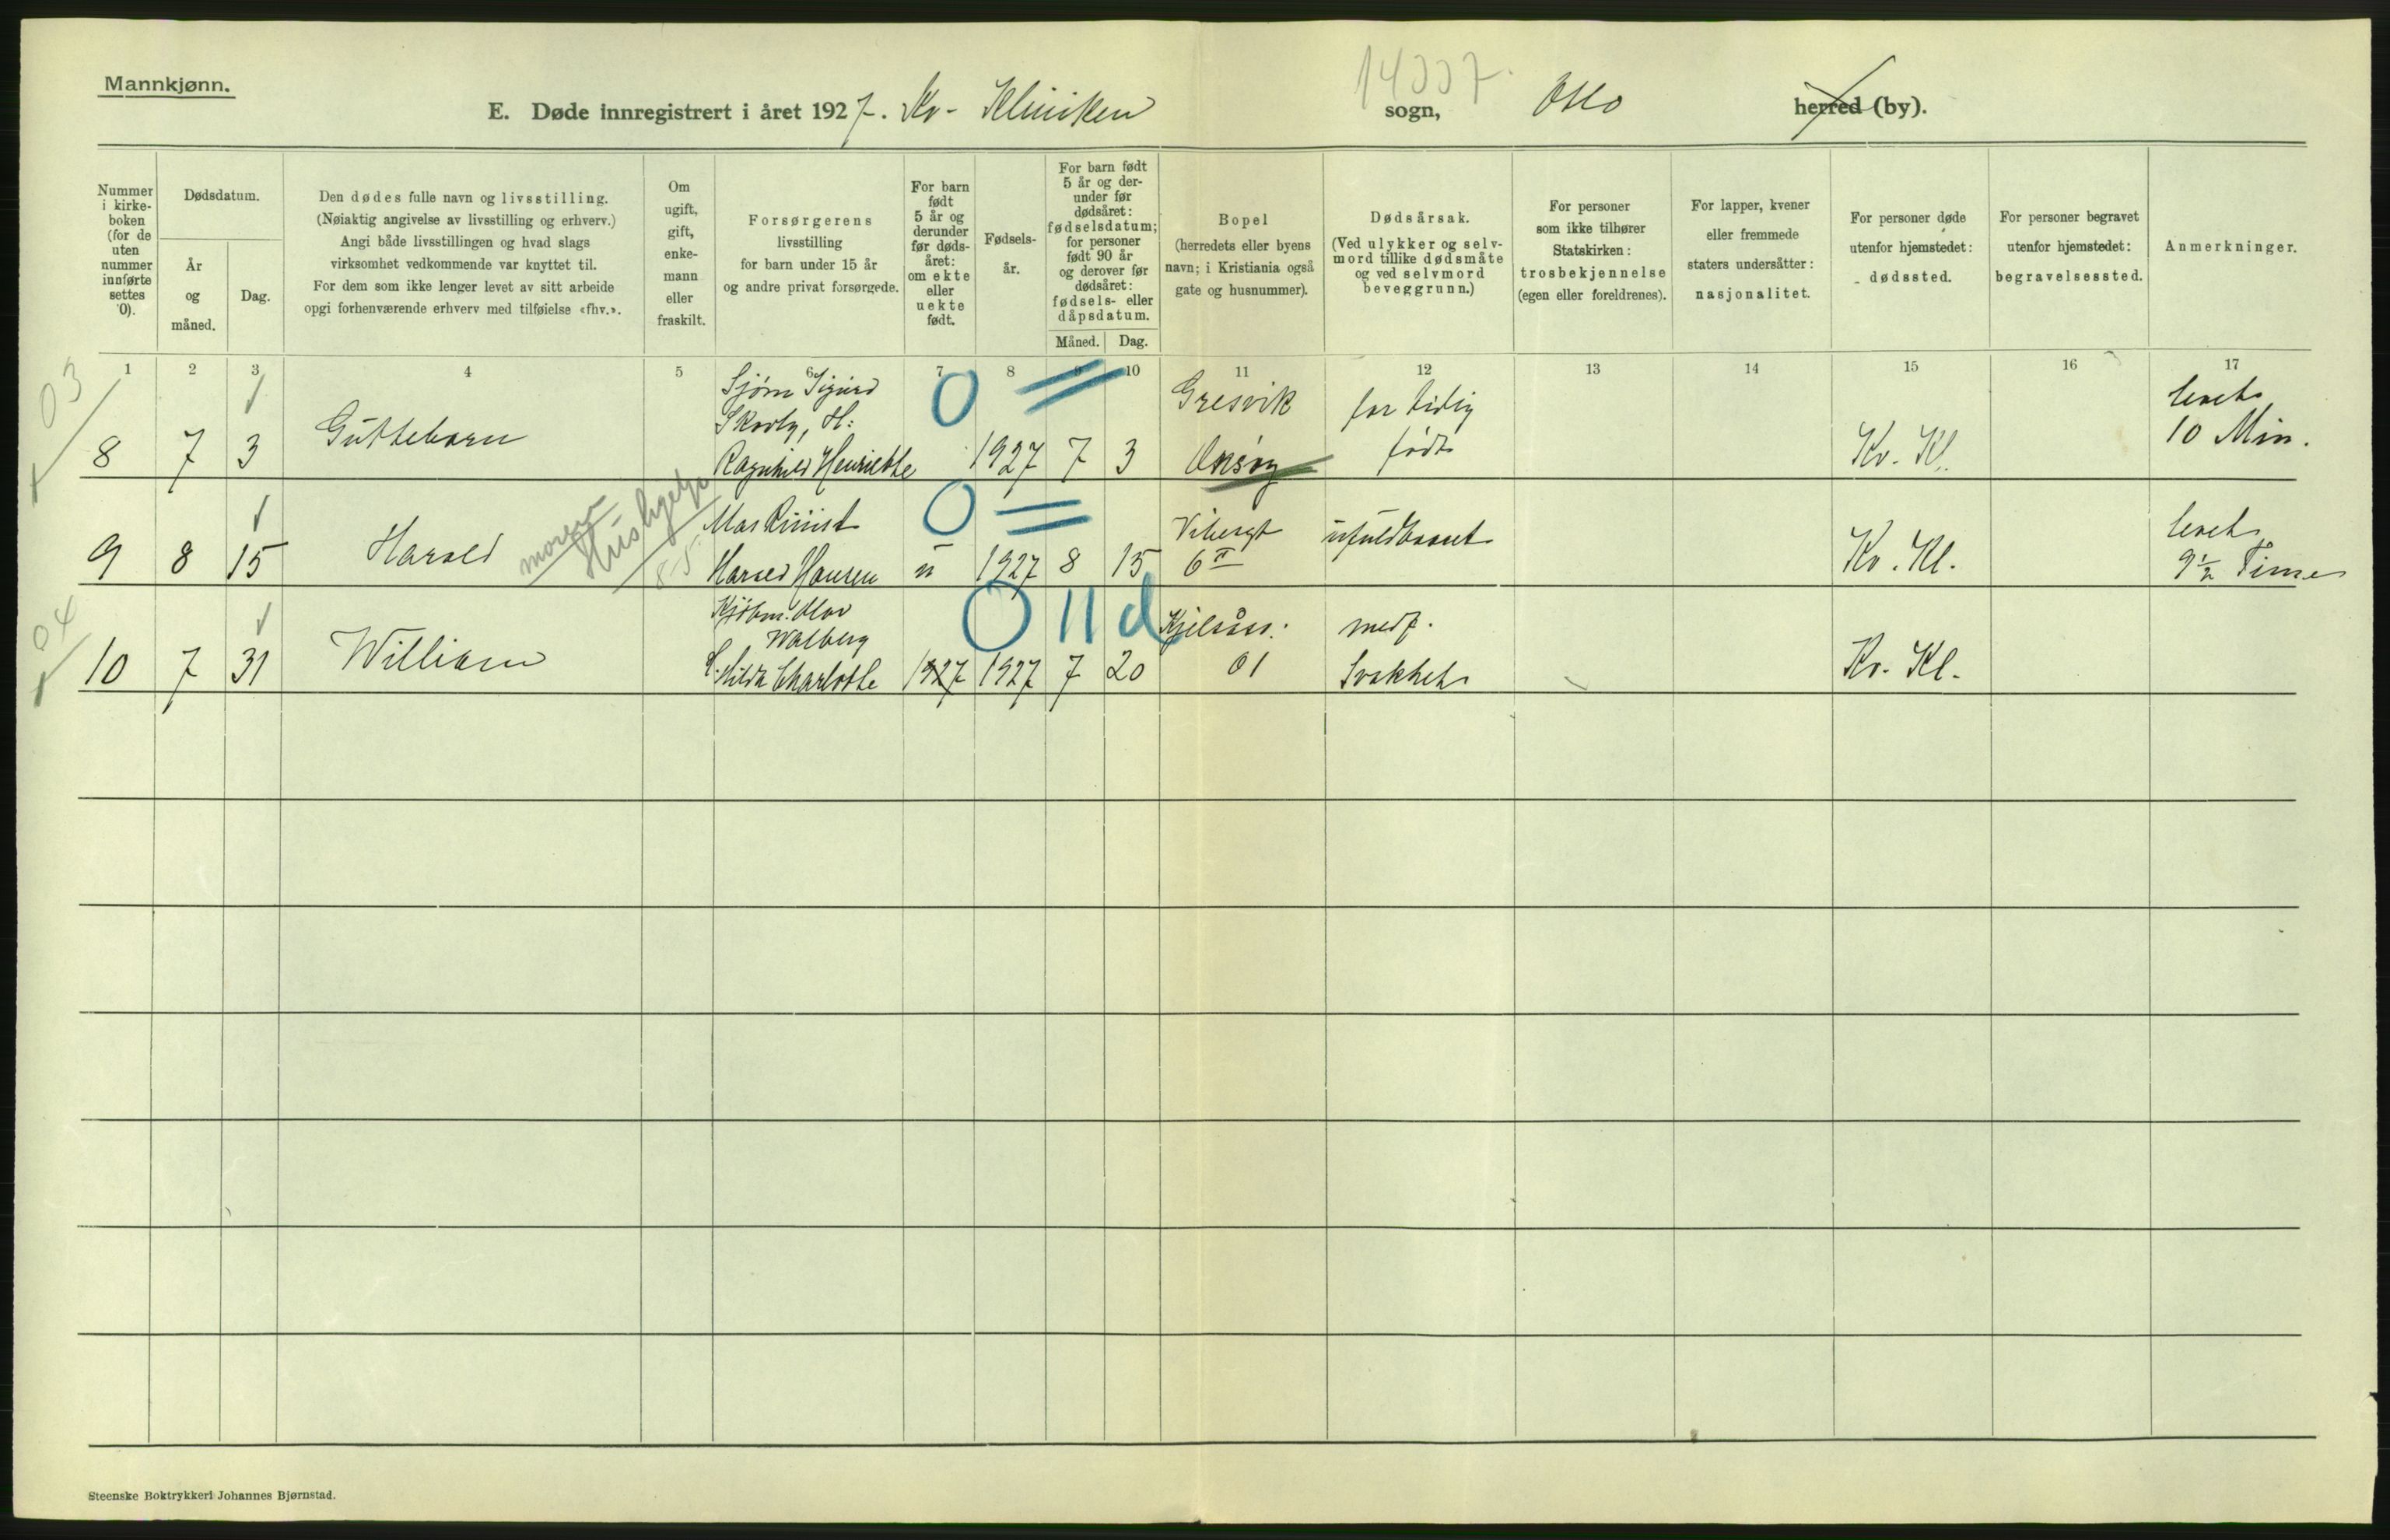 Mannkjønn.
14007.
E. Døde innregistrert i året 1927. Kv- Kliniken sogn, Oslo herred (by).
Nummer i kirke- boken (for de uten nummer innførte settes 0).
Dødsdatum.
År og måned.
Dag.
Den dødes fulle navn og livsstilling.
(Nøiaktig angivelse av livsstilling og erhverv.)
Angi både livsstillingen og hvad slags
virksomhet vedkommende var knyttet til.
For dem som ikke lenger levet av sitt arbeide
opgi forhenværende erhverv med tilføielse «fhv.».
Om ugift, gift, enke- mann eller fraskilt.
Forsørgerens
livsstilling
for barn under 15 år
og andre privat forsørgede.
For barn født 5 år og derunder før døds- året: om ekte eller uekte født.
Fødsels- år.
For barn født 5 år og der- under før dødsåret: fødselsdatum; for personer født 90 år og derover før dødsåret: fødsels- eller dåpsdatum.
Måned. Dag.
Bopel
(herredets eller byens
navn; i Kristiania også
gate og husnummer).
Dødsårsak.
(Ved ulykker og selv-
mord tillike dødsmåte
og ved selvmord
beveggrunn.)
For personer
som ikke tilhører
Statskirken:
trosbekjennelse
(egen eller foreldrenes).
For lapper, kvener
eller fremmede
staters undersåtter:
nasjonalitet.
For personer døde
utenfor hjemstedet:
dødssted.
For personer begravet
utenfor hjemstedet:
begravelsessted.
Anmerkninger.
1 2 3 4 5 6 7 8 9 10 11 12 13 14 15 16 17
03
8 7 3 Guttebarn
Sjøm Sigurd
Skovly, H:
Ragnhild Henriette
0
1927 7 3
Gresvik
Onsøy
for tidlig
født
Kv. Kl.
levet
10 Min.
9 8 15 Harald
moren
Hushjelp
85
Maskinist
Harald Hansen
0
u 1927 8 15
Vibergt
6 II
ufuldbaaret
Kv. Kl.
levet
9½ Time
04
10 7 31 William
Kjøbm. Olav
Walberg
H. Hilda Charlotte
0 11 d
1927 1927 7 20
Kjelsåss.
01
medf.
Svakhet
Kv. Kl.
Steenske Boktrykkeri Johannes Bjørnstad.